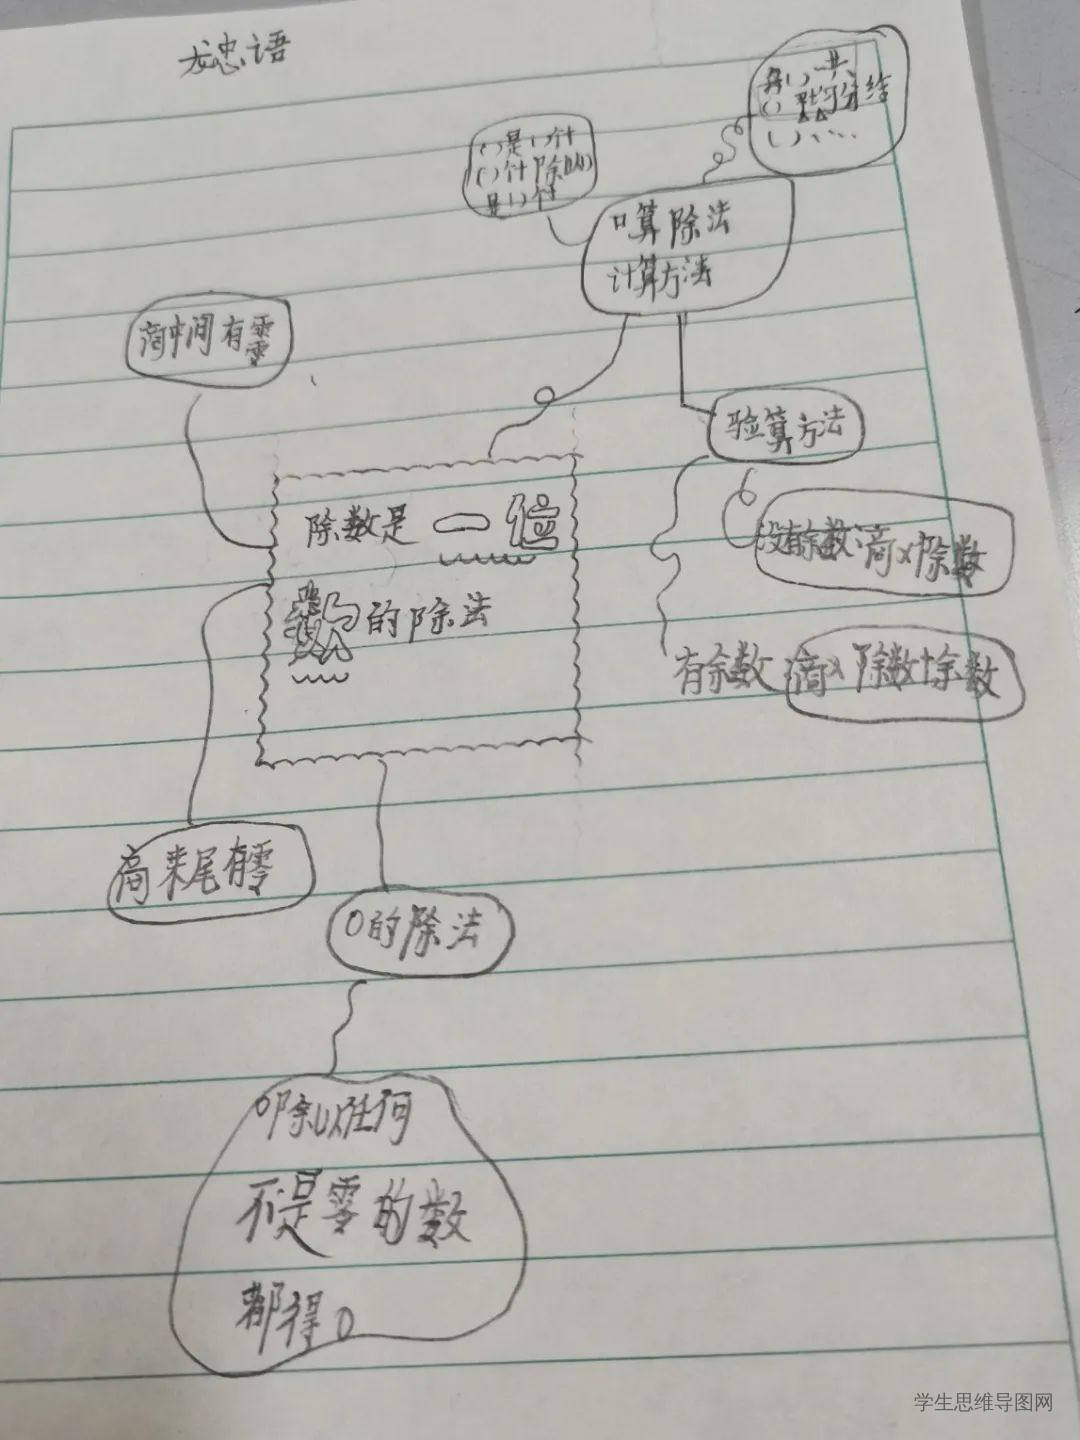 龙忠语
( )是( )个十
( )个十除以( )
是( )个十
( )平均分给
( )……
口算除法
计算方法
商中间有零
验算方法
除数是一位
数的除法
没有余数:商×除数
有余数 商×除数+余数
商末尾有零
0的除法
0除以任何
不是零的数
都得0
学生思维导图网